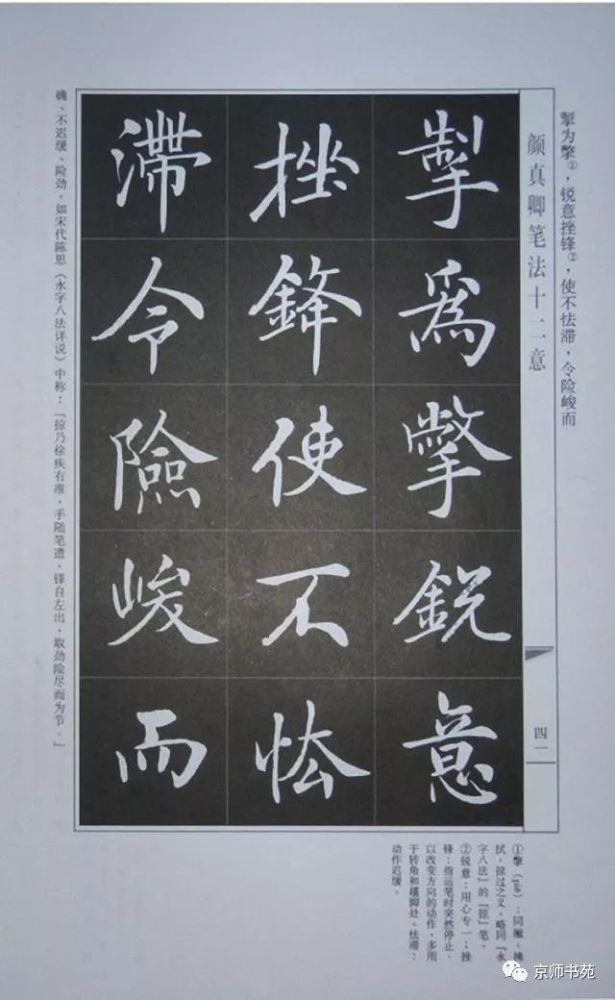 掣为撆①，锐意挫锋②，使不怯滞，令险峻而
颜真卿笔法十二意
四一
掣為撆銳意
挫鋒使不怯
滯令險峻而
确、不迟缓、险劲，如宋代陈思《永字八法详说》中称：「掠乃徐疾有准，手随笔遣，锋自左出，取劲险尽而为节。」
①撆（piě）：同撇。拂
拭、掠过之义，略同『永
字八法』的『掠』笔。
②锐意：用心专一；挫
锋：指运笔时突然停止，
以改变方向的动作，多用
于转角和趯脚处。怯滞：
动作迟缓。
京师书苑